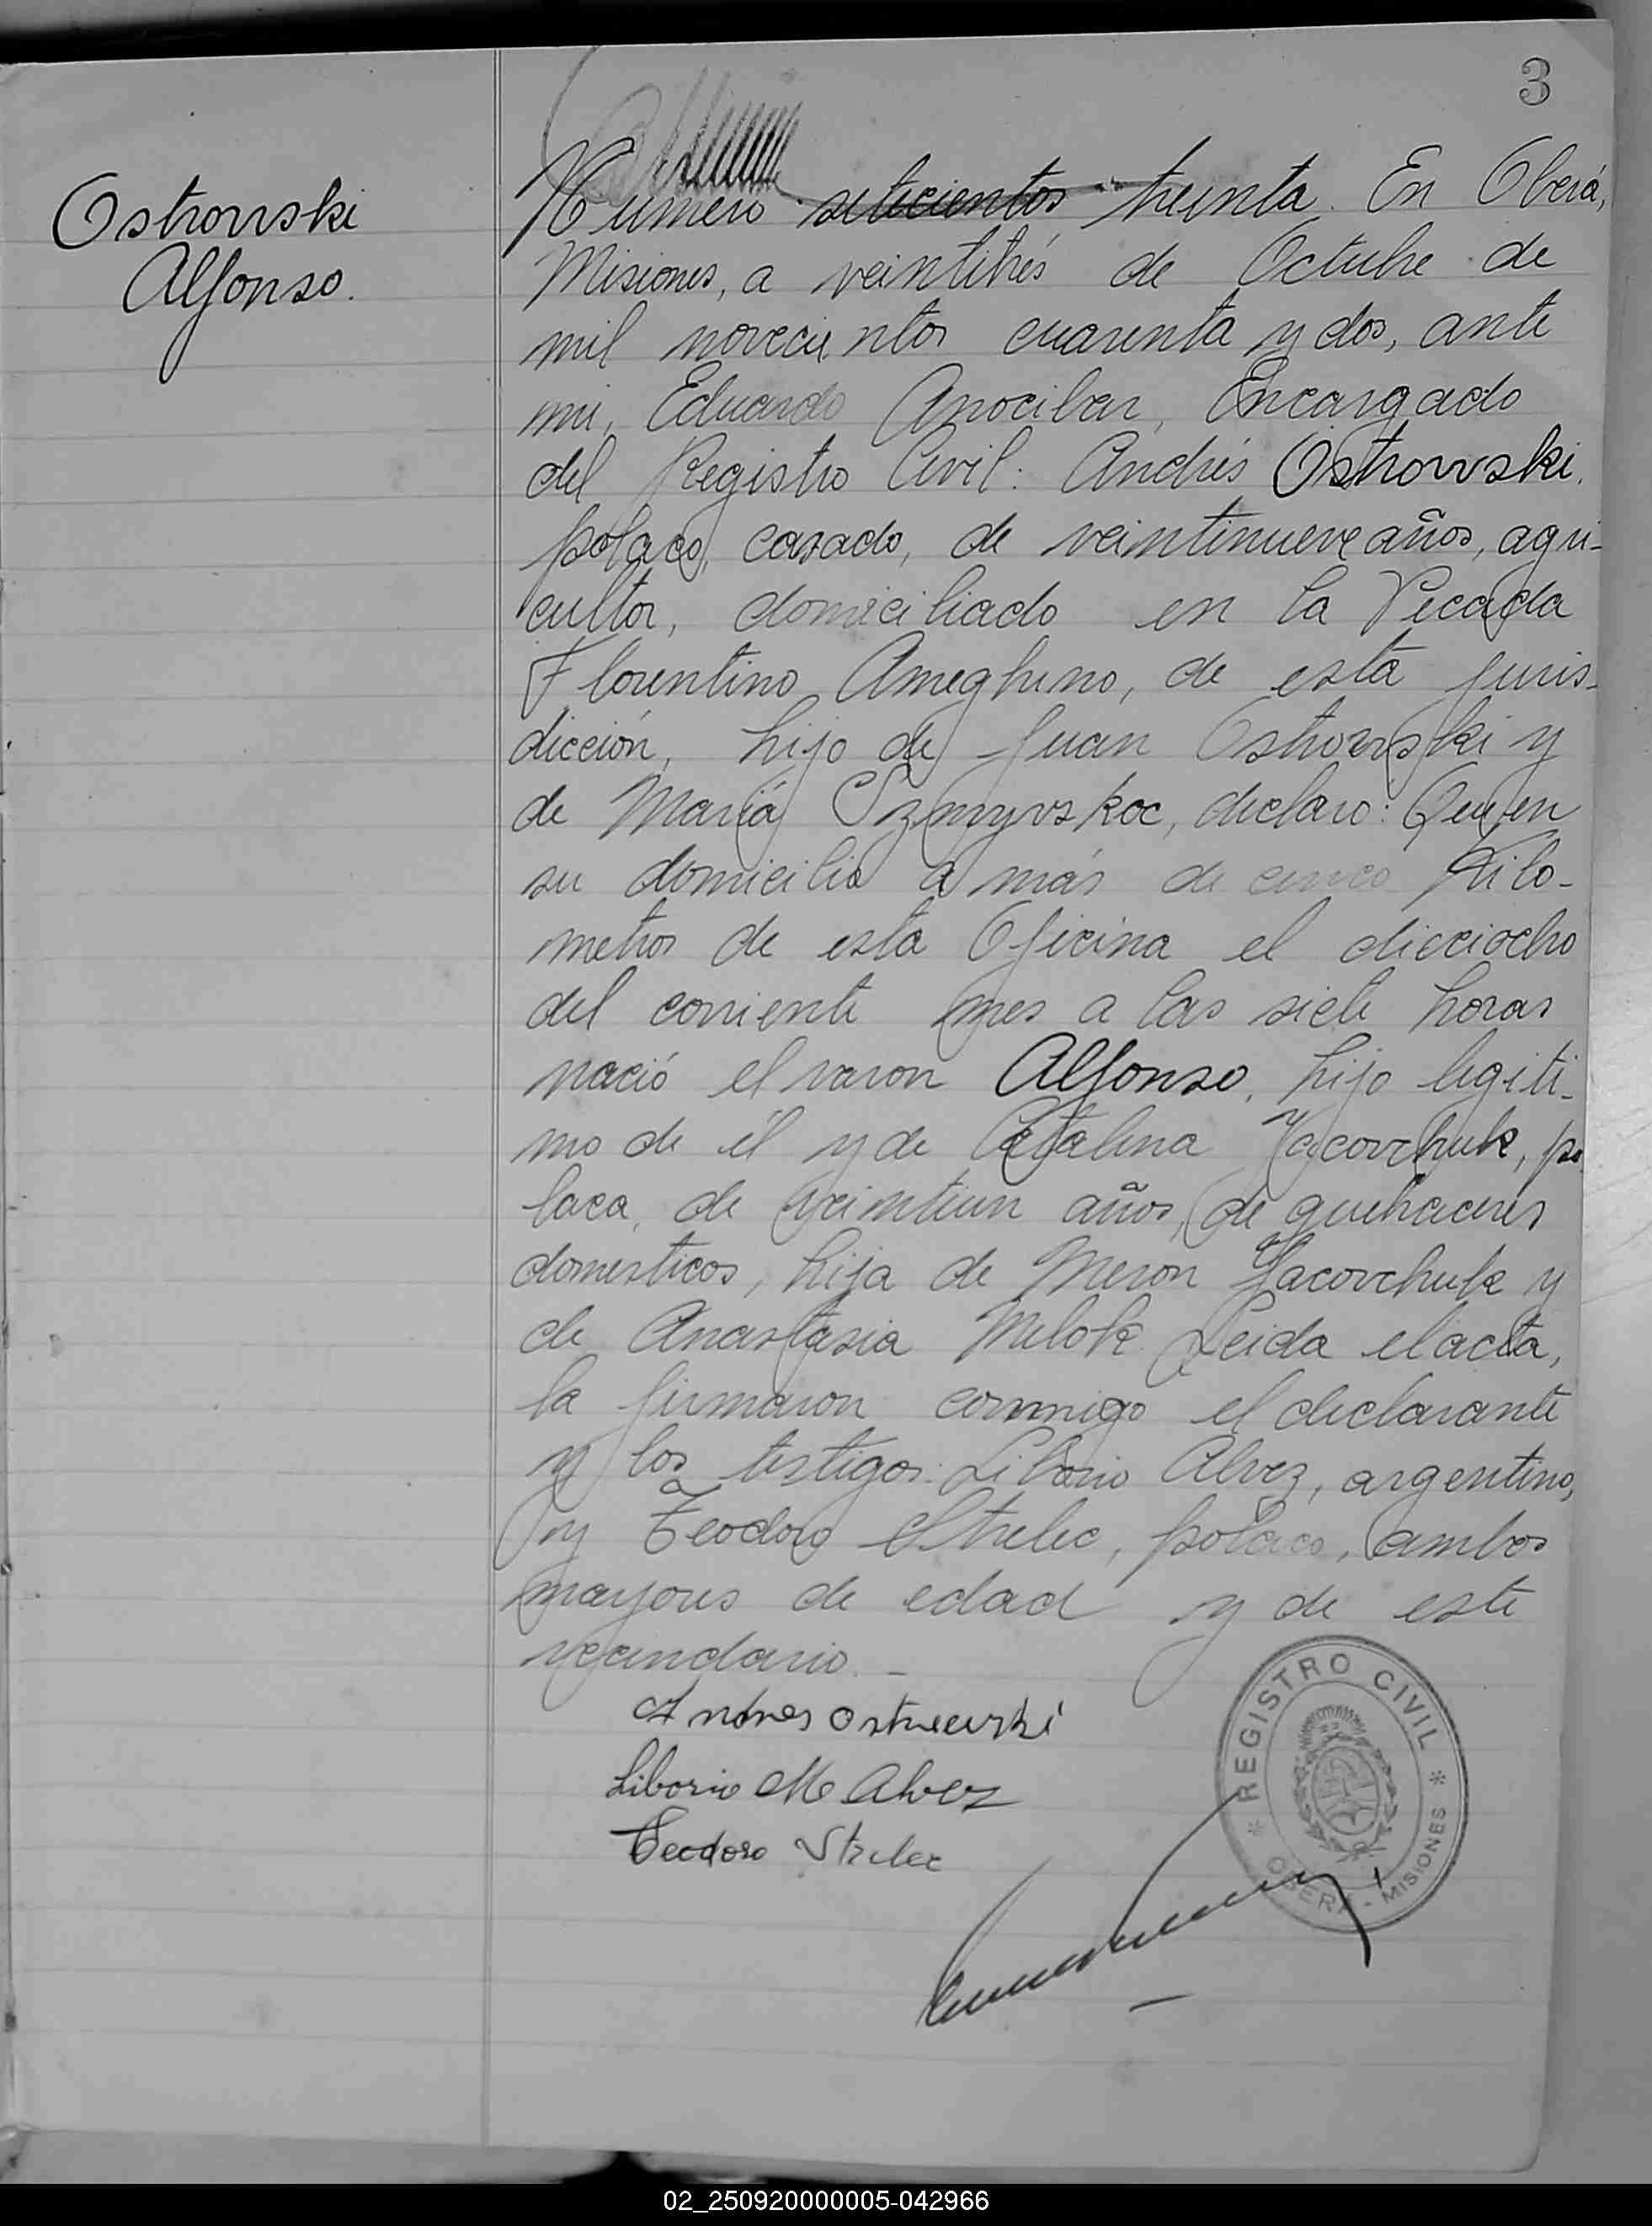 3
Ostrowski
Alfonso.
Número setecientos treinta. En Oberá,
Misiones, a veintitrés de Octubre de
mil novecientos cuarenta y dos, ante
mi, Eduardo Anocibar, Encargado
del Registro Civil: Andrés Ostrowski,
polaco, casado, de veintinueve años, agri-
cultor, domiciliado en la Picada
Florentino Ameghino, de esta juris-
dicción, hijo de Juan Ostrowski y
de María Szmyrskoc, declaro: Que en
su domicilio a más de cinco kilo-
metros de esta Oficina el dieciocho
del corriente mes a las siete horas
nació el varon Alfonso, hijo legiti-
mo de él y de Catalina Yacovchuk, po
laca, de veintiun años, de quehaceres
domesticos, hija de Meron Yacovchuk y
de Anastasia Melok. Leida el acta,
la firmaron conmigo el declarante
y los testigos: Liborio Alvez, argentino,
y Teodoro Strelec, polaco, ambos
mayores de edad y de este
vecindario. -
Andres Ostrowski
Liborio M Alvez
Teodoro Strelec
* REGISTRO CIVIL *
OBERÁ - MISIONES
02_250920000005-042966